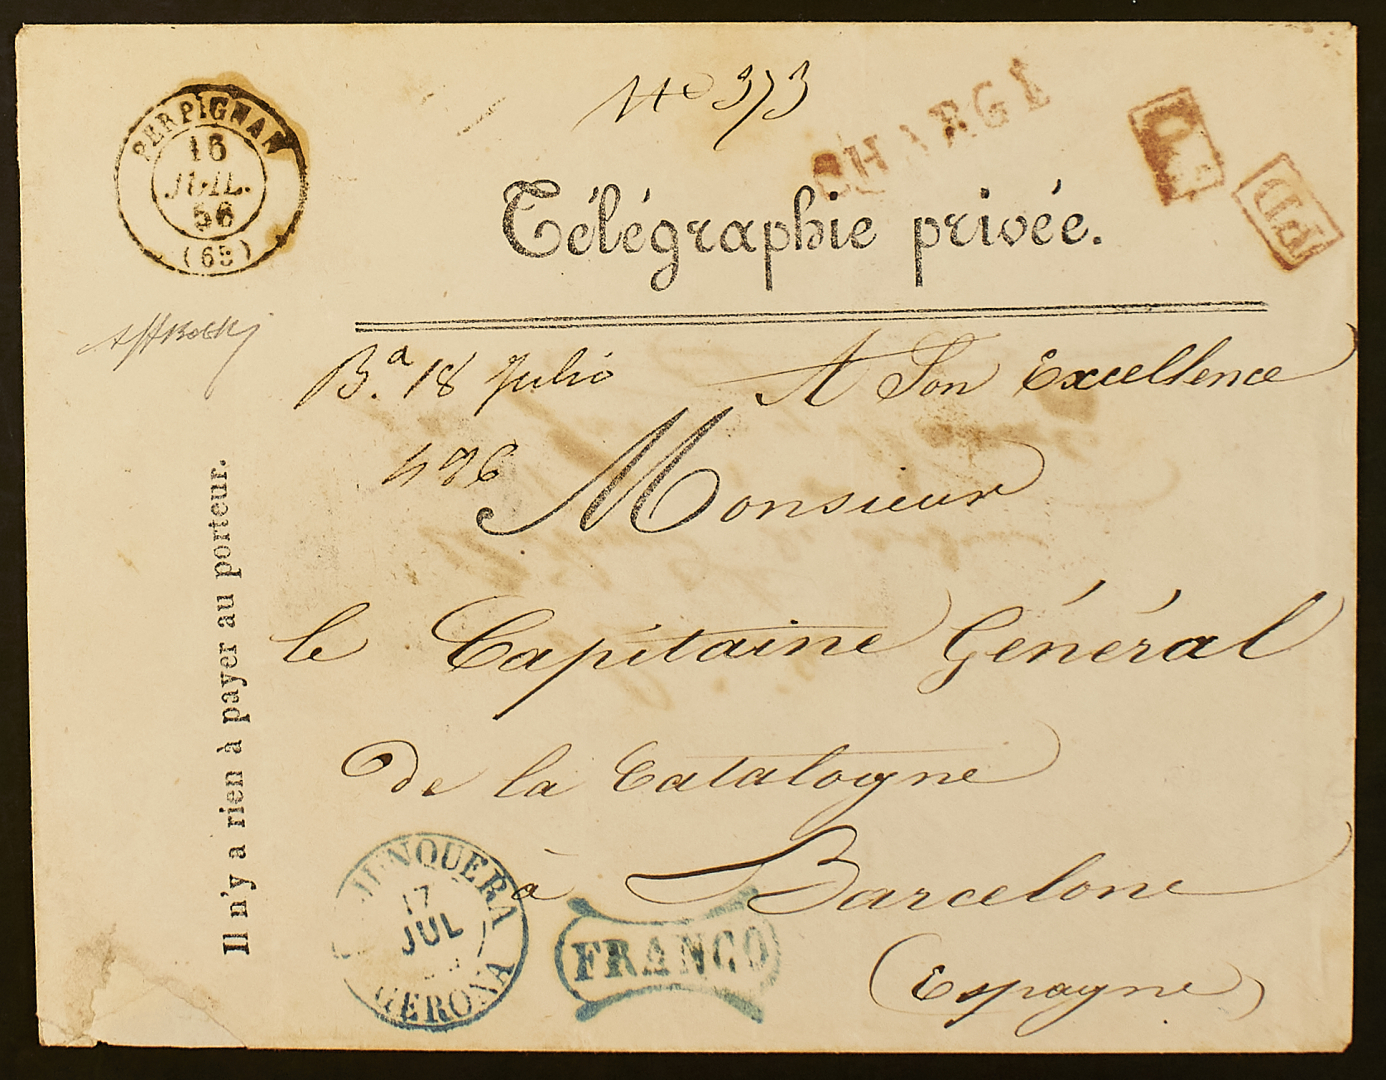 No 373
CHARGÉ
PD
PD
PERPIGNAN
16
JUIL.
56
(65)
Télégraphie privée.
Bª. 18 Julio
A Son Excellence
496
Monsieur
le Capitaine Général
de la Catalogne
à Barcelone
(Espagne)
Il n'y a rien à payer au porteur.
JUNQUERA
17
JUL
GERONA
FRANCO